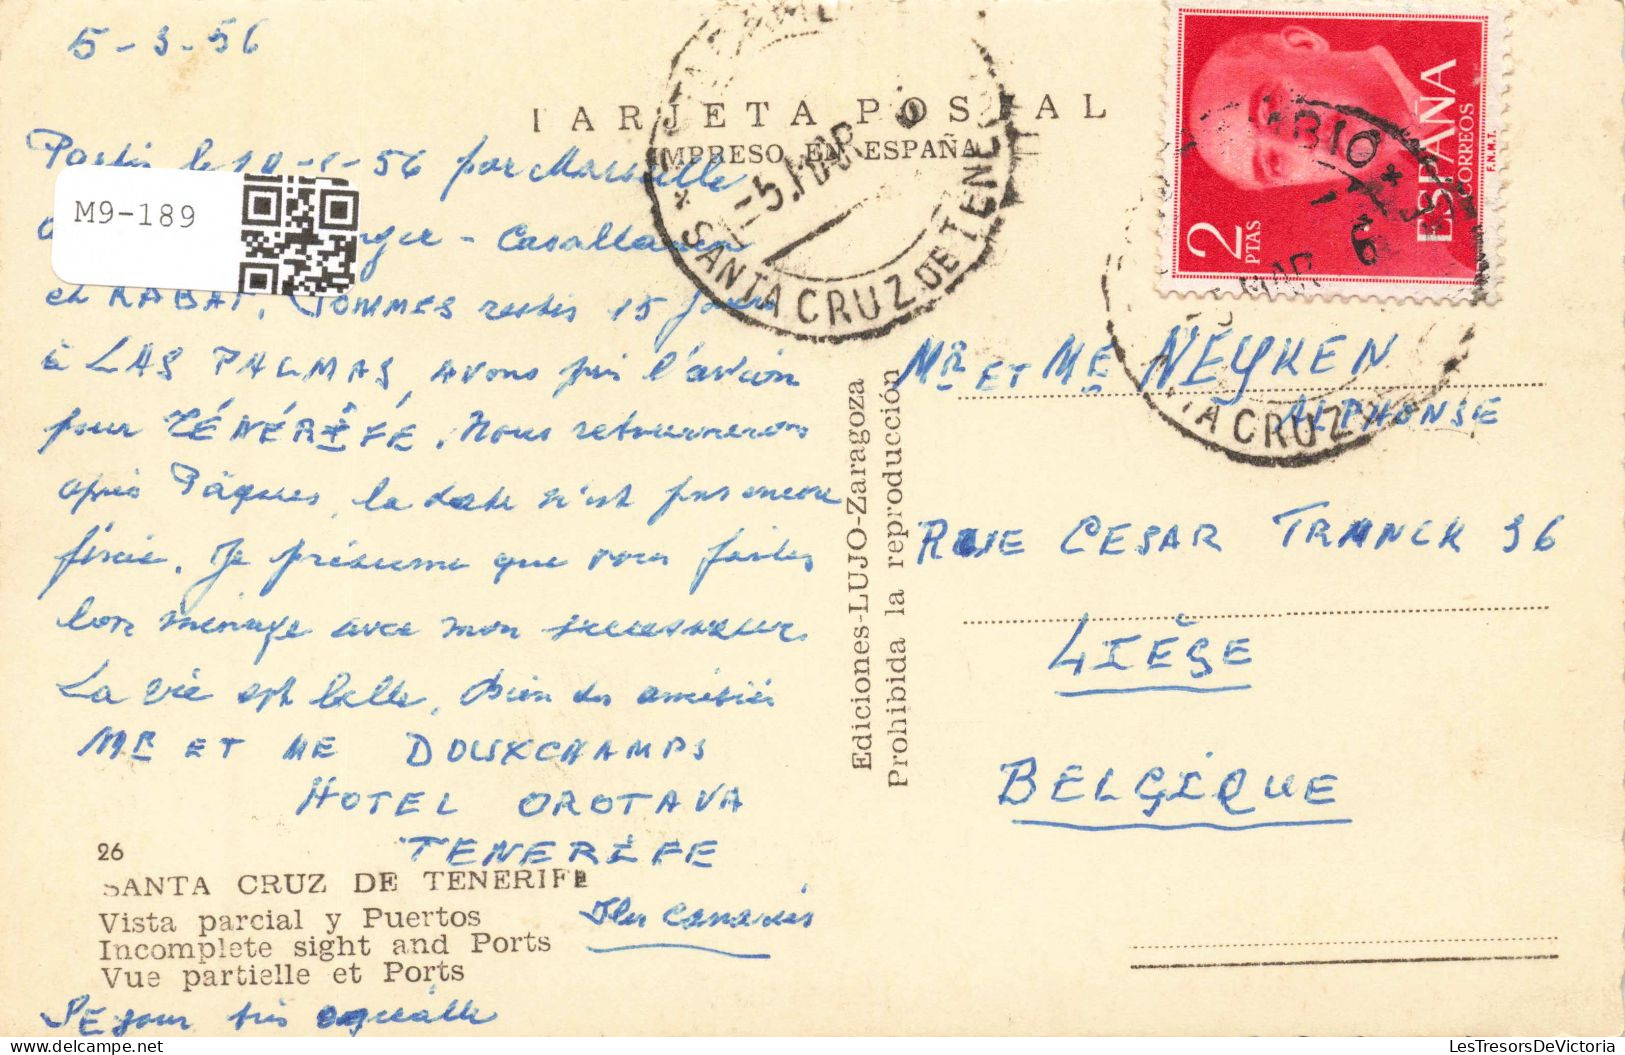 5-3-56
TARJETA POSTAL
IMPRESO EN ESPAÑA
Partis le 10-1-56 par Marseille
M9-189
- Casablanca
et RABAT. SOMMES restés 15 jours
à LAS PALMAS, avons pris l'avion
pour TÉNÉRIFE. Nous retournerons
après Pâques, la date n'est pas encore
fixée. Je présume que vous faites
bon ménage avec mon successeur.
La vie est belle. Bien des amitiés
MR ET ME DOUXCHAMPS
HOTEL OROTAVA
TENERIFE
Iles Canaries
26
SANTA CRUZ DE TENERIFE
Vista parcial y Puertos
Incomplete sight and Ports
Vue partielle et Ports
SÉjour très agréable
Ediciones-LUJO-Zaragoza
Prohibida la reproducción
SANTA CRUZ DE TENE
-5.MAR
2 PTAS
ESPAÑA
CORREOS
F.N.M.T.
MAR
TA CRUZ
MR ET ME NEYKEN
ALPHONSE
RUE CESAR FRANCK 36
LIÈGE
BELGIQUE
LesTresorsDeVictoria.com